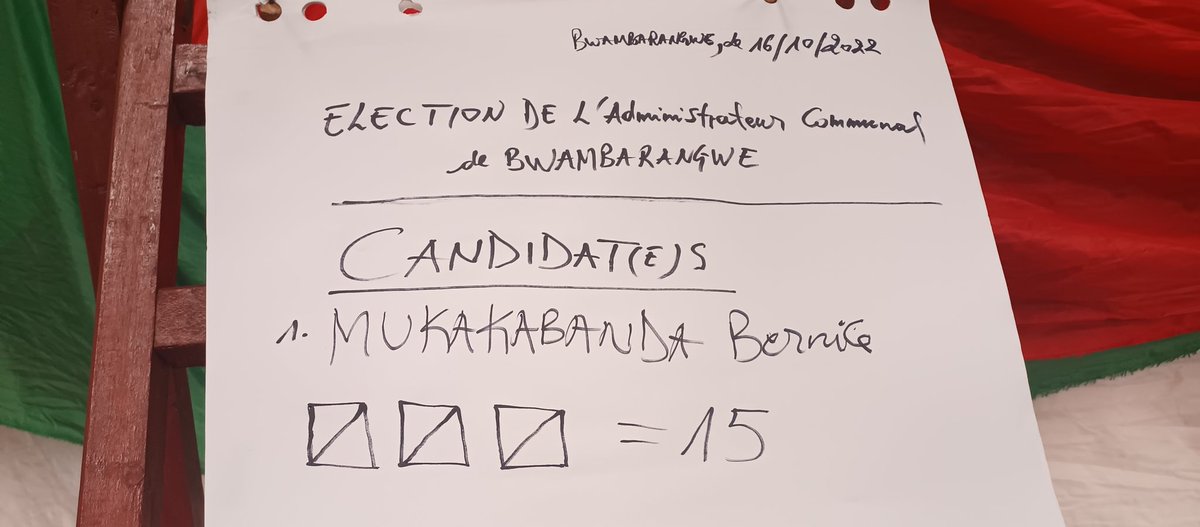 BWAMBARANGWE, de 16/10/2022
ELECTION DE L'Administrateur Communal
de BWAMBARANGWE
CANDIDAT(E)S
1. MUKAKABANDA Bernice
= 15